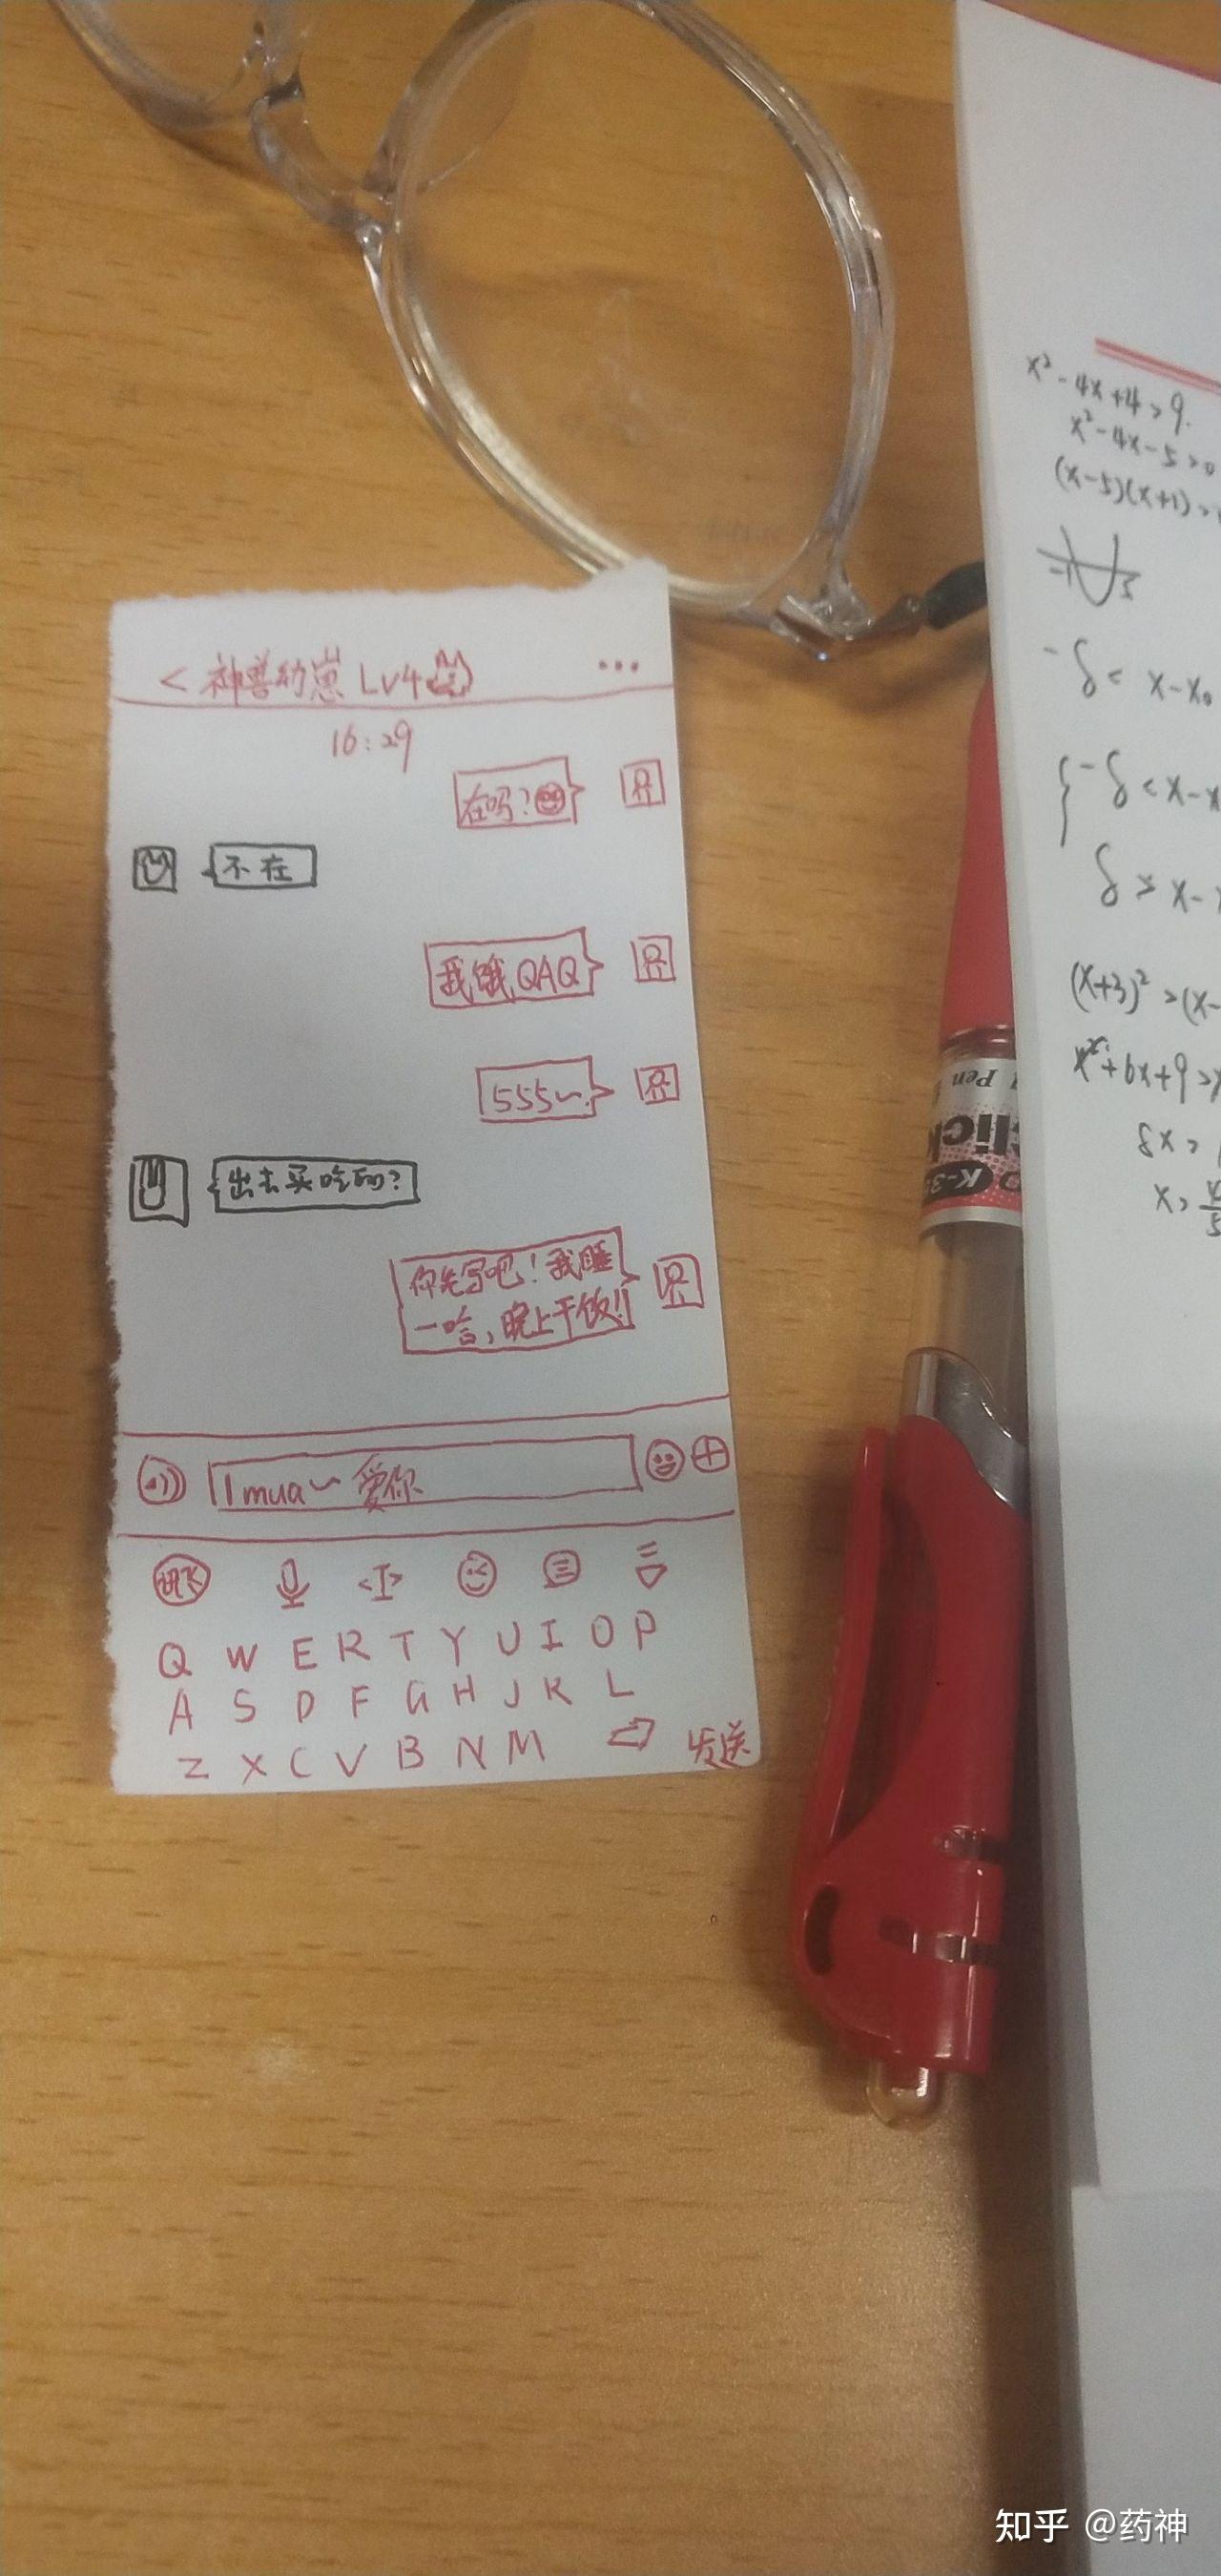 < 神兽幼崽 Lv4 ...
16:29
在吗?
不在
我饿QAQ
555~.
出去买吃的?
你先写吧!我睡
一哈,晚上干饭!!
mua~ 爱你
讯飞
Q W E R T Y U I O P
A S D F G H J K L
Z X C V B N M 发送
x²-4x+4>9.
x²-4x-5>0
(x-5)(x+1)>
-1 5
-δ< x-x₀
-δ<x-x
δ> x-
(x+3)²>(x-
x²+6x+9>x
8x>
x>
Pen
lick
K-3
知乎 @药神